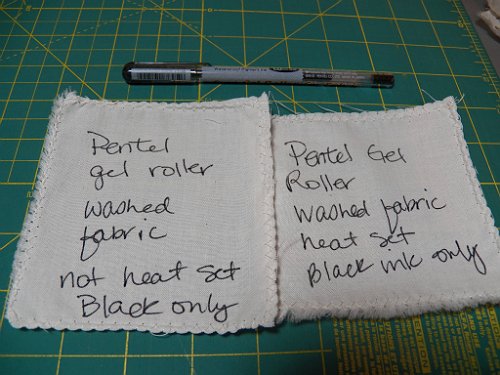 Pentel
gel roller
washed
fabric
not heat set
Black only
Pentel Gel
Roller
washed fabric
heat set
Black ink only